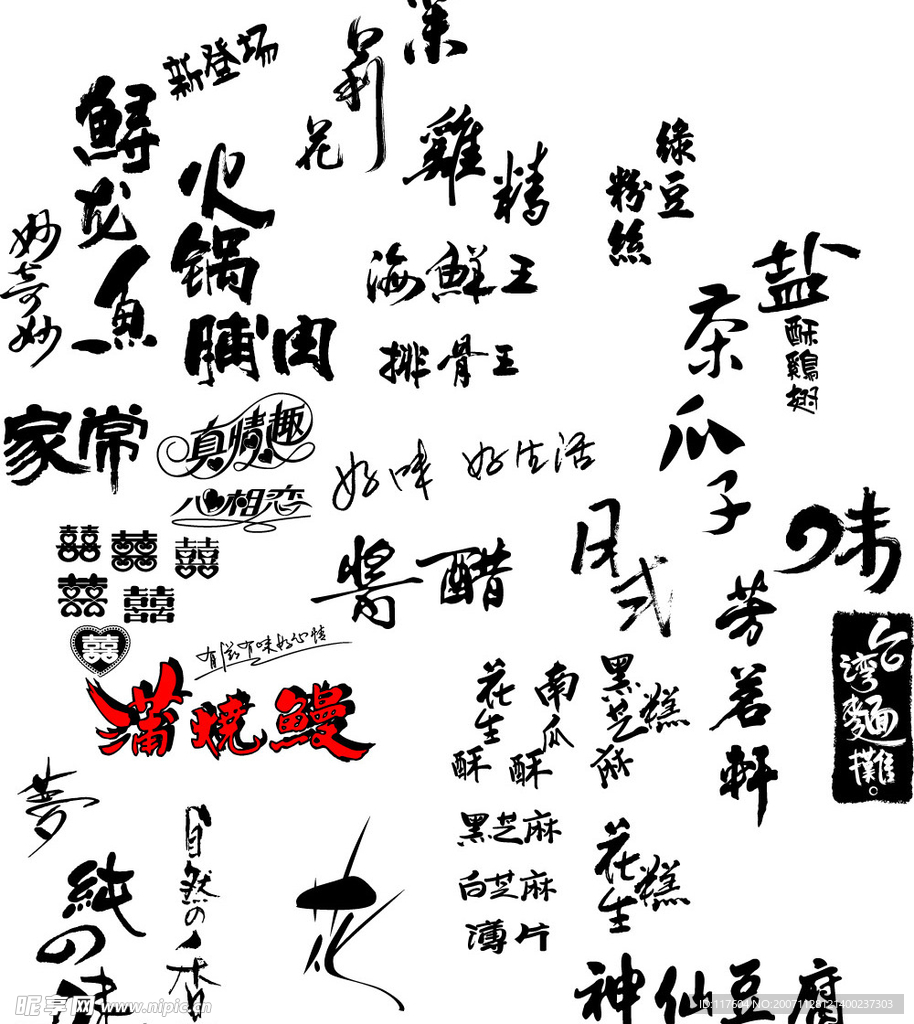 新登场
莉
花
雞
精
綠豆
粉絲
鲟龙鱼
火锅
脯肉
妙奇妙
海鮮王
排骨王
盐
酥鷄翅
茶
瓜子
家常
真情趣
心相恋
好味
好生活
味
日式
醬醋
囍
囍
囍
囍
囍
囍
有滋有味好心情
蒲燒鰻
花生
酥
南瓜
酥
黑芝麻
糕
芳茗軒
台灣麵攤。
夢
純の味
自然の
花
黑芝麻
白芝麻
薄片
花生
糕
神仙豆腐
昵享网 www.nipic.cn
ID:117504 NO:20071128121400237303